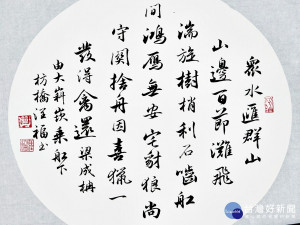 眾水匯群山
山邊百節灘飛
湍旋樹梢利石嚙舡
間鴻雁無安宅豺狼尚
守關捨舟因喜獵一
發得禽還 梁成枬
由大嵙崁乘船下
枋橋 汪福書